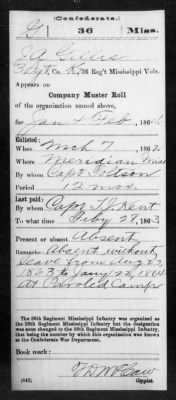 (Confederate.)
G | 36 | Miss.
J A Gillis
Sergt, Co. K, 36 Reg't Mississippi Vols.
Appears on
Company Muster Roll
of the organization named above,
for Jan & Feb, 1864.
Enlisted:
When Mch 7, 1862.
Where Meridian Miss
By whom Capt Totson
Period 12 mos.
Last paid:
By whom Capt Kent
To what time Feby 28, 1863
Present or absent Absent
Remarks: Absent without
leave from Aug 23
1863 to Jany 22, 1864
At Paroled Camp
The 36th Regiment Mississippi Infantry was organized as
the 36th Regiment Mississippi Infantry but the designation
was soon changed to the 36th Regiment Mississippi Infantry,
that being the number by which this organization was known
at the Confederate War Department.
Book mark:
(642)
T D McCaw
Copyist.